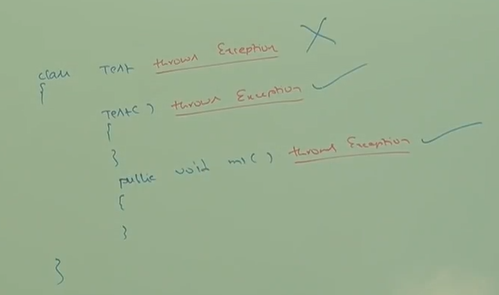 class Test throws Exception
{
Test() throws Exception
{
}
public void m1() throws Exception
{
}
}